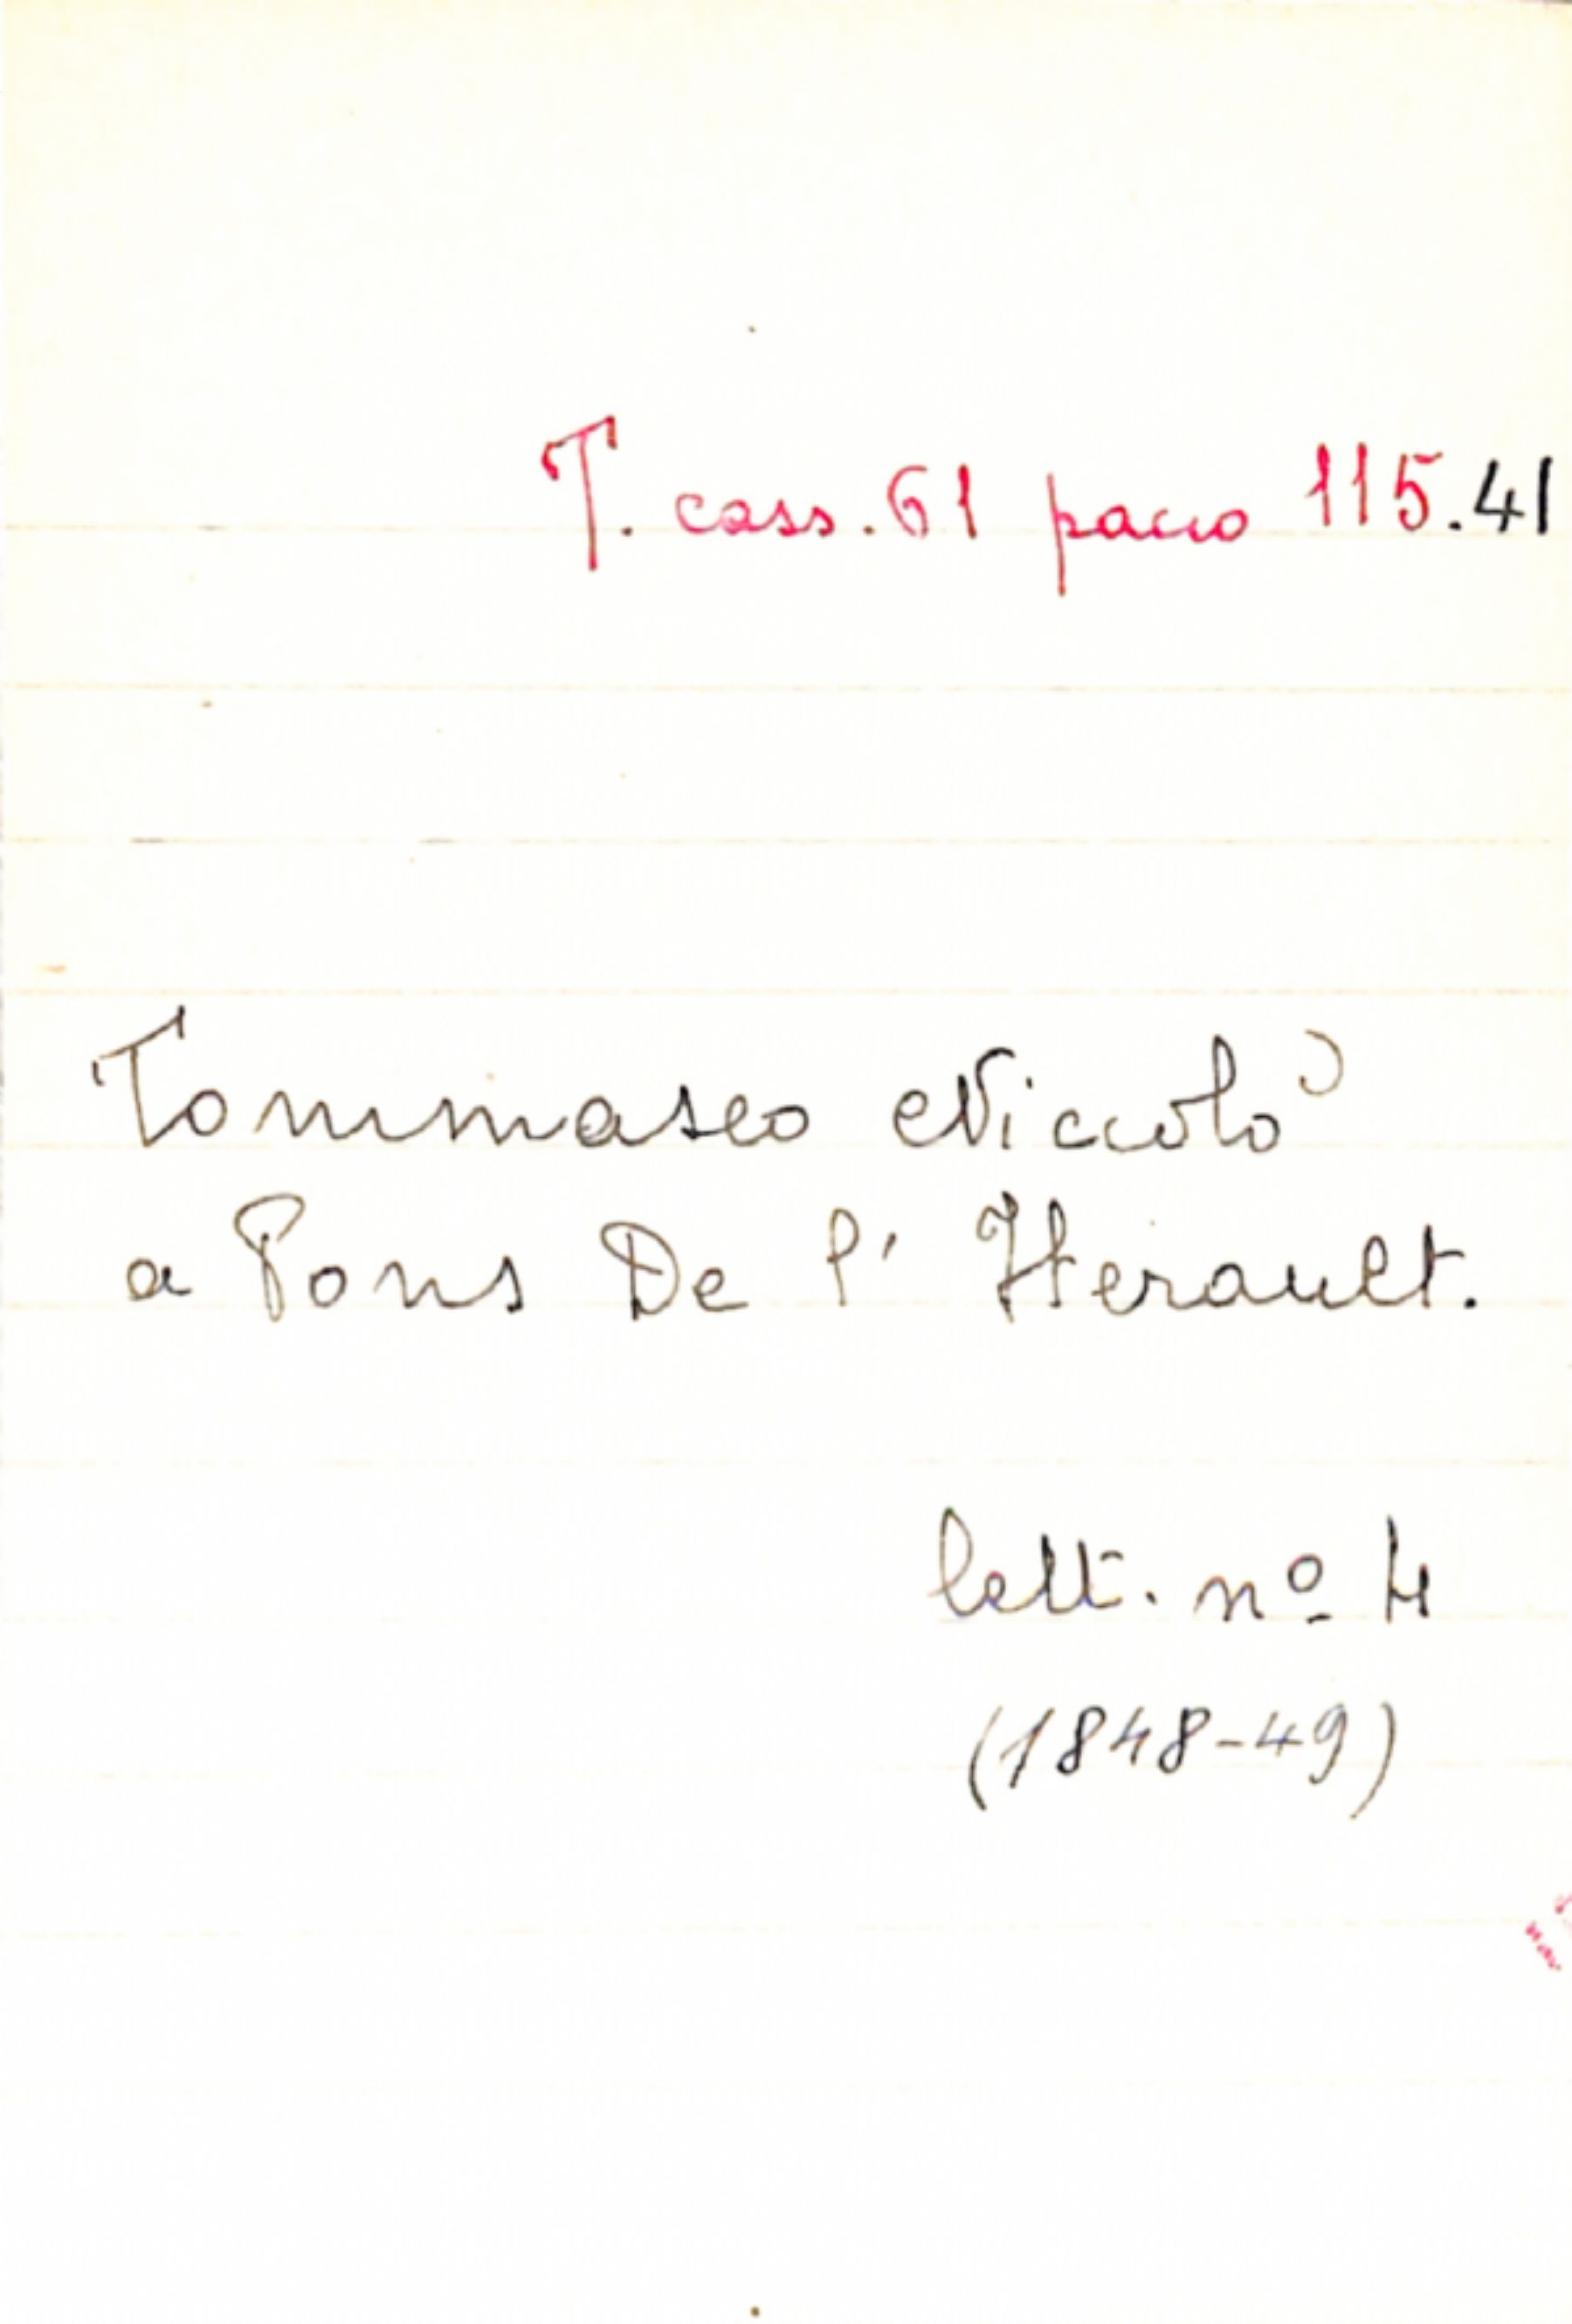 T. cass. 61 pacco 115.41
Tommaseo Niccolò
a Pons De l' Herault.
lett. nº 4
(1848-49)